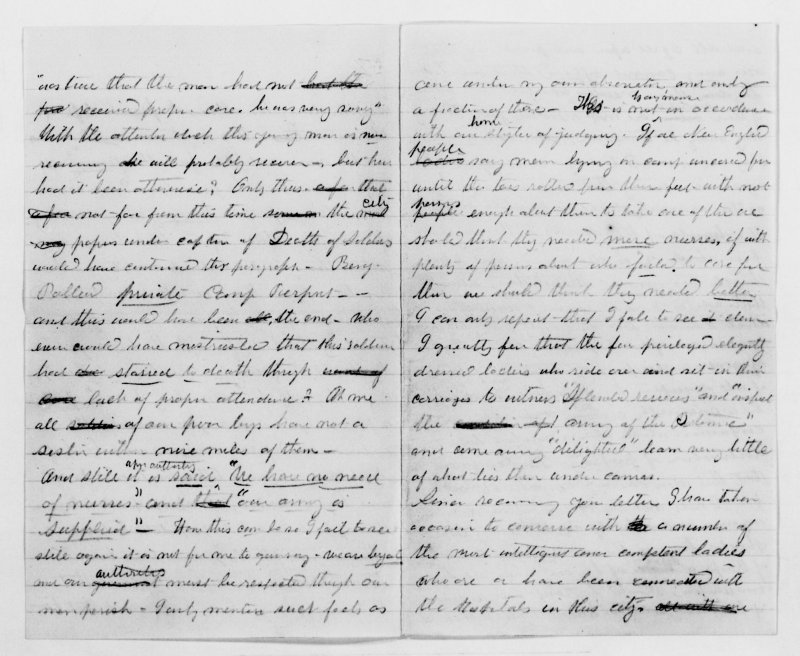 was true that the man had not had the
for received proper care, he was very sorry"
With the attention which this young man is now
receiving she will probably recover, but how
had it been otherwise? Only thus a few that
a few not far from this time some on the city
may papers under caption of Deaths of Soldiers
would have contained the paragraph - Benj.
Pollard private Camp Pierpont - -
and this would have been all, the end - who
ever would have mistrusted that this soldier
had starved to death through want of
lack of proper attendance? Ah me
all soldiers of our poor boys have not a
sister within nine miles of them -
And still it is said, upon authority "We have no need
of nurses" and that "our army is
supplied" - How this can be so I fail to see
still again it is not for me to gainsay - we are loyal
and our government authority must be respected though our
men perish - I only mention such facts as
came under my own observation and only
a fraction of those - This is not in accordance
with our home style of judging. If we New England
people say men lying in camp uncared for
until the toes rotted from their feet with not
persons enough about them to take care of them we
should think they needed more nurses, if with
plenty of persons about who failed to care for
them we should think they needed better
I can only repeat that I fail to see clear
I greatly fear that the few privileged elegantly
dressed ladies who ride over and sit in their
carriages to witness "splendid reviews" and "inspect
the army of the Potomac"
and come away "delighted" learn very little
of what lies there under canvas.
Since receiving your letter I have taken
occasion to converse with a number of
the most intelligent and competent ladies
who are or have been connected with
the Hospitals in this city